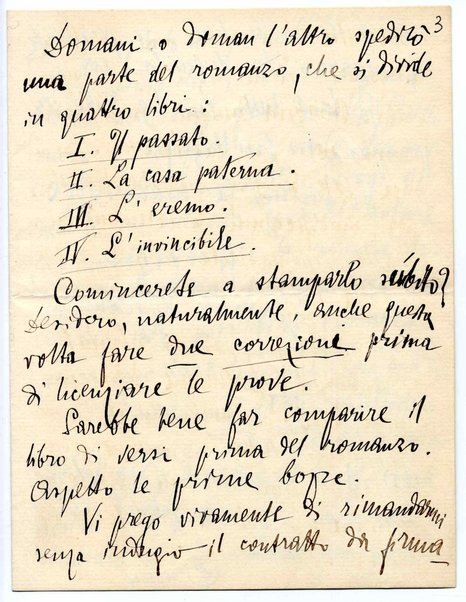 3
Domani o doman l'altro spedirò
una parte del romanzo, che si divide
in quattro libri:
I. Il passato.
II. La casa paterna.
III. L'eremo.
IV. L'invincibile.
Comincerete a stamparlo sùbito?
Desidero, naturalmente, anche questa
volta fare due correzioni prima
di licenziare le prove.
Sarebbe bene far comparire il
libro di versi prima del romanzo.
Aspetto le prime bozze.
Vi prego vivamente di rimandarmi
senza indugio il contratto da firma